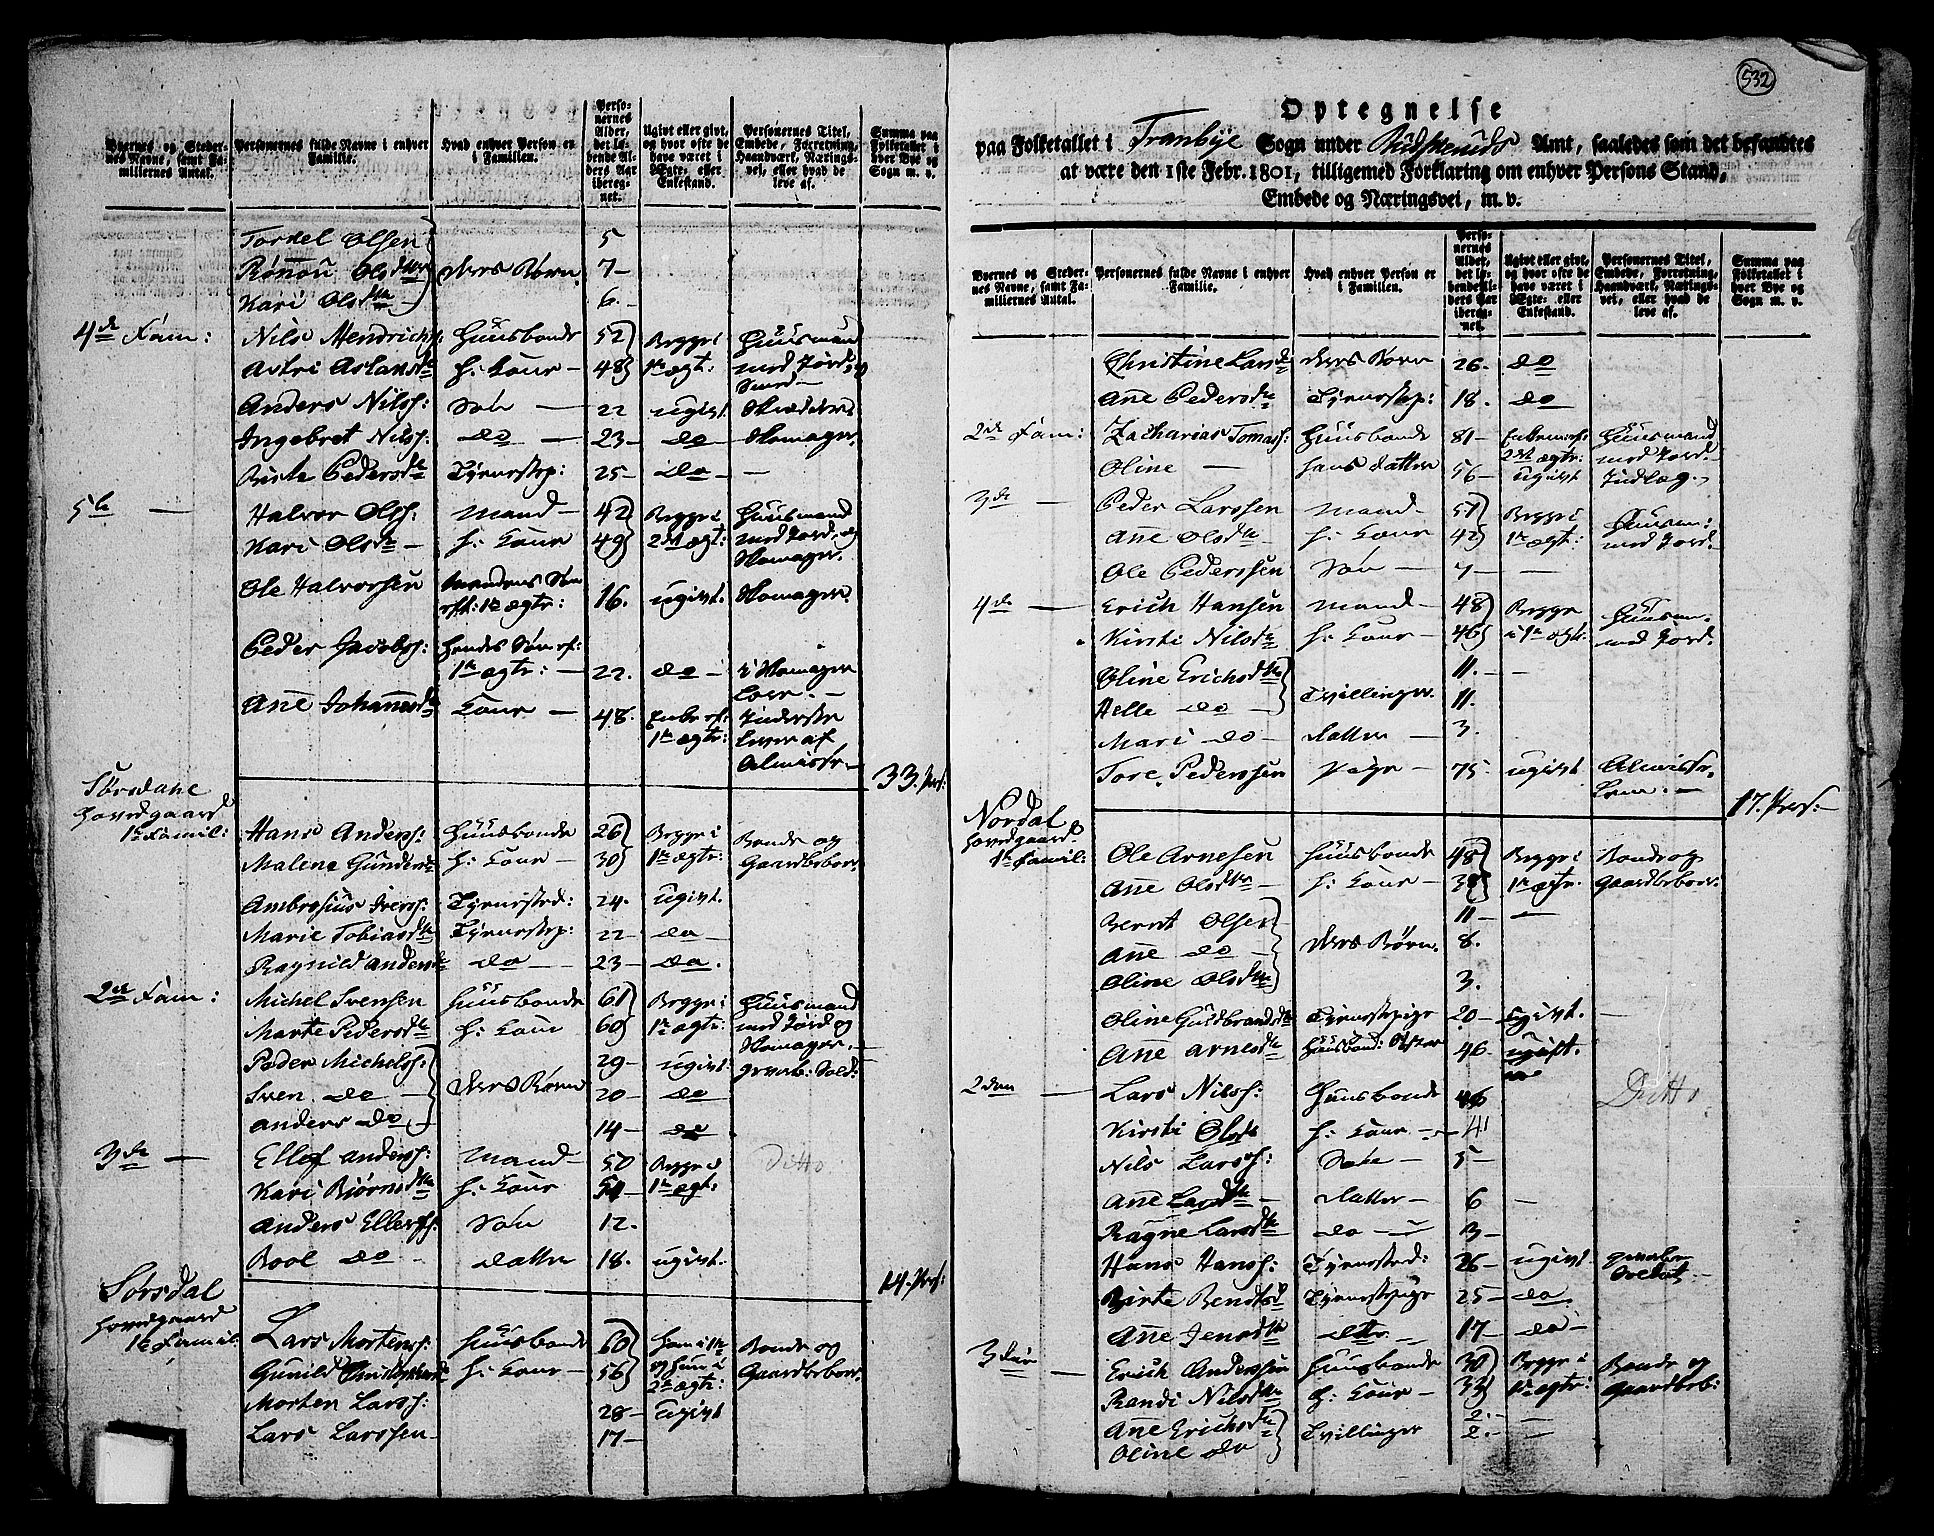 Byernes og Steder-
nes Navne, samt Fa-
miliernes Antal.
Personernes fulde Navne i enhver
Familie.
Hvad enhver Person er
i Familien.
Perso-
nernes
Alder,
det lø-
bende Al-
ders Aar
ibereg-
net.
Ugivt eller givt,
og hvor ofte de
have været i
Ægte- eller
Enkestand.
Personernes Titel,
Embede, Forretning,
Haandværk, Nærings-
vei, eller hvad de
leve af.
Summa paa
Folketallet i
hver Bye og
Sogn m. v.
Tordel Olsen 5
Rønnou Olsdtter deres Børn 7
Kari Olsdtr 6.
4de Fam: Nils Hendrichs: Huusbonde 52 Begge i Huusmand
Astri Aslansdr h: Kone 48 1te ægt: med Jord og
Smed
Anders Nilss: Søn 22 ugivt Skrædder
Ingebret Nilss: do 23 do Skomager
Birte Pedersdr Tjenestep: 25 do
5te Halvor Olss: Mand 42 Begge i Huusmand
Kari Olsdr h: Kone 49 2det ægt: med Jord og
Skomager.
Ole Halvorsen Mandens Søn
af 1te ægte: 16. ugivt. Skomager
Peder Jacobs: Hendes Søn af
1te ægte: 22. do i Skomager
Lære.
Ane Johannesdr Kone 48. Enke ef: Inderste
1te ægte: Lever af
Almisse
33. Pers:
Sørsdane
Hovedgaard
1te Famil: Hans Anders: Huusbonde 26 Begge i Bonde og
Malene Gunders h: Kone 30 1te ægte: Gaardbeboer
Ambrosius Ivers: Tjenested: 24. ugivt.
Marie Tobiasdr Tjenestep: 22 do
Ragnild Andersdr do 23 do.
2den Fam: Michel Svensen Huusbonde 61 Begge i Huusmand
Marte Pedersdr h: Kone 60 1te ægte: med Jord og
Skomager.
Peder Michels: 29 ugivt gevorb: Sold:
Sven do deres Børn 20 do
Anders do 14 do
3de Ellef Anders: Mand 50 Begge i Ditto
Kari Bjørnsdr h: Kone 54 1te ægt:
Anders Ellefs: Søn 12.
Boel do datter 18. ugivt.
14. Pers:
Sørsdal
Hovedgaard
1te Famil: Lars Mortens: Huusbonde 60 Han i 1te Bonde og
Gunild Christophersdr h: Kone 56 og hun i Gaardbeboer.
2det ægte:
Morten Larss: 28 ugivt
Lars Larssen 17
532
Optegnelse
paa Folketallet i Tranbye Sogn under Budskeruds Amt, saaledes som det befandtes
at være den 1ste Febr. 1801, tilligemed Forklaring om enhver Persons Stand,
Embede og Næringsvei, m. v.
Byernes og Steder-
nes Navne, samt Fa-
miliernes Antal.
Personernes fulde Navne i enhver
Familie.
Hvad enhver Person er
i Familien.
Perso-
nernes
Alder,
det lø-
bende Al-
ders Aar
ibereg-
net.
Ugivt eller givt,
og hvor ofte de
have været i
Ægte- eller
Enkestand.
Personernes Titel,
Embede, Forretning,
Haandværk, Nærings-
vei, eller hvad de
leve af.
Summa paa
Folketallet i
hver Bye og
Sogn m. v.
Christine Larsdr deres Børn 26. do
Ane Pedersdr Tjenestep: 18. do
2den Fam: Zacharias Tomas: Huusbonde 81 Enkem: ef: Huusmand
2det ægte: med Jord.
Oline hans datter 56 ugivt Indlæg.
3de Peder Larssen Mand 51 Begge i Huusm:
Ane Olsdtr h: Kone 42 1te ægt: med Jord.
Ole Pederssen Søn 7
4de Erich Hansen Mand 48 Begge Huusm:
Kirsti Nilsdr h: Kone 46 i 1te ægt: med Jord.
Oline Erichsdtr 11.
Helle do Tvillinger 11.
Mari do datter 3.
Tore Pederssen 75. ugivt Almisse
Lem.
17. Pers:
Nordal
Hovedgaard
1te Famil: Ole Arnesen Huusbonde 48 Begge i Bonde og
Ane Olsdtr h: Kone 38 1te ægte. Gaardbeboer.
Bernt Olsen 11
Ane do deres Børn. 8.
Oline Olsdtr 3.
Oline Guldbrandsdtr Tjenestepige 20 ugivt.
Ane Arnesdtr Huusbond: Søster 46 ugift.
2den Lars Nilss: Huusbonde 46 Ditto
Kirsti Olsdr h: Kone 41
Nils Larss: Søn 5
Ane Larsdtr datter 6
Ragne Larsdtr do 3
Hans Hanss: Tjenested: 26 ugivt
Birte Bendtsd Tjenestepige 25 do
Ane Jensdtr do 17 do
3die Erich Anderssen Huusbonde 30 Begge i Bonde og
Randi Nilsdtr h: Kone 33 1te ægte: Gaardbeb:
Ane Erichsdtr 2.
Oline do Tvillinger 2.